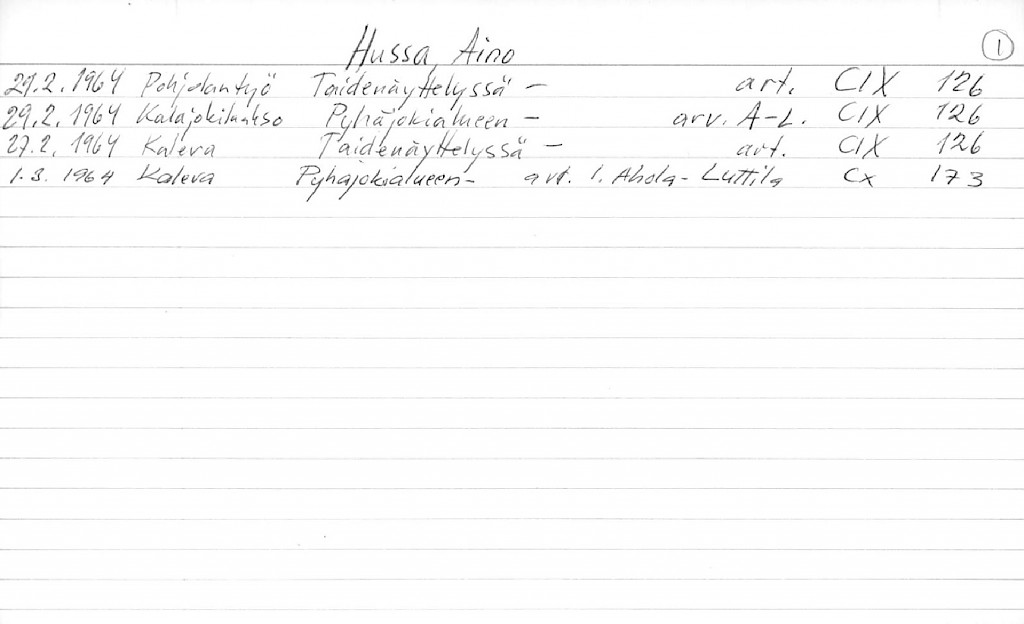 Hussa, Aino 1
29.2.1964 Pohjolan työ Taidenäyttelyssä - art. CIX 126
29.2.1964 Kalajokilaakso Pyhäjokialueen - arv. A-L. CIX 126
27.2.1964 Kaleva Taidenäyttelyssä - art. CIX 126
1.3.1964 Kaleva Pyhäjokialueen- art. I. Ahola-Luttila CX 173